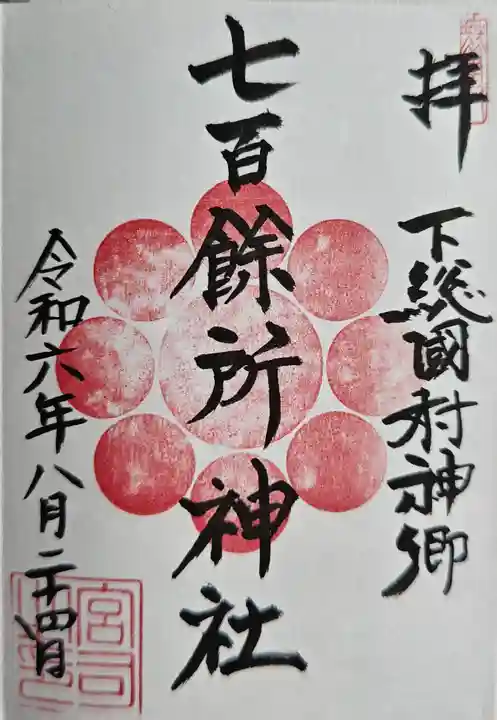 拝
下総國村神郷
七百餘所神社
令和六年八月二十四日
宮司